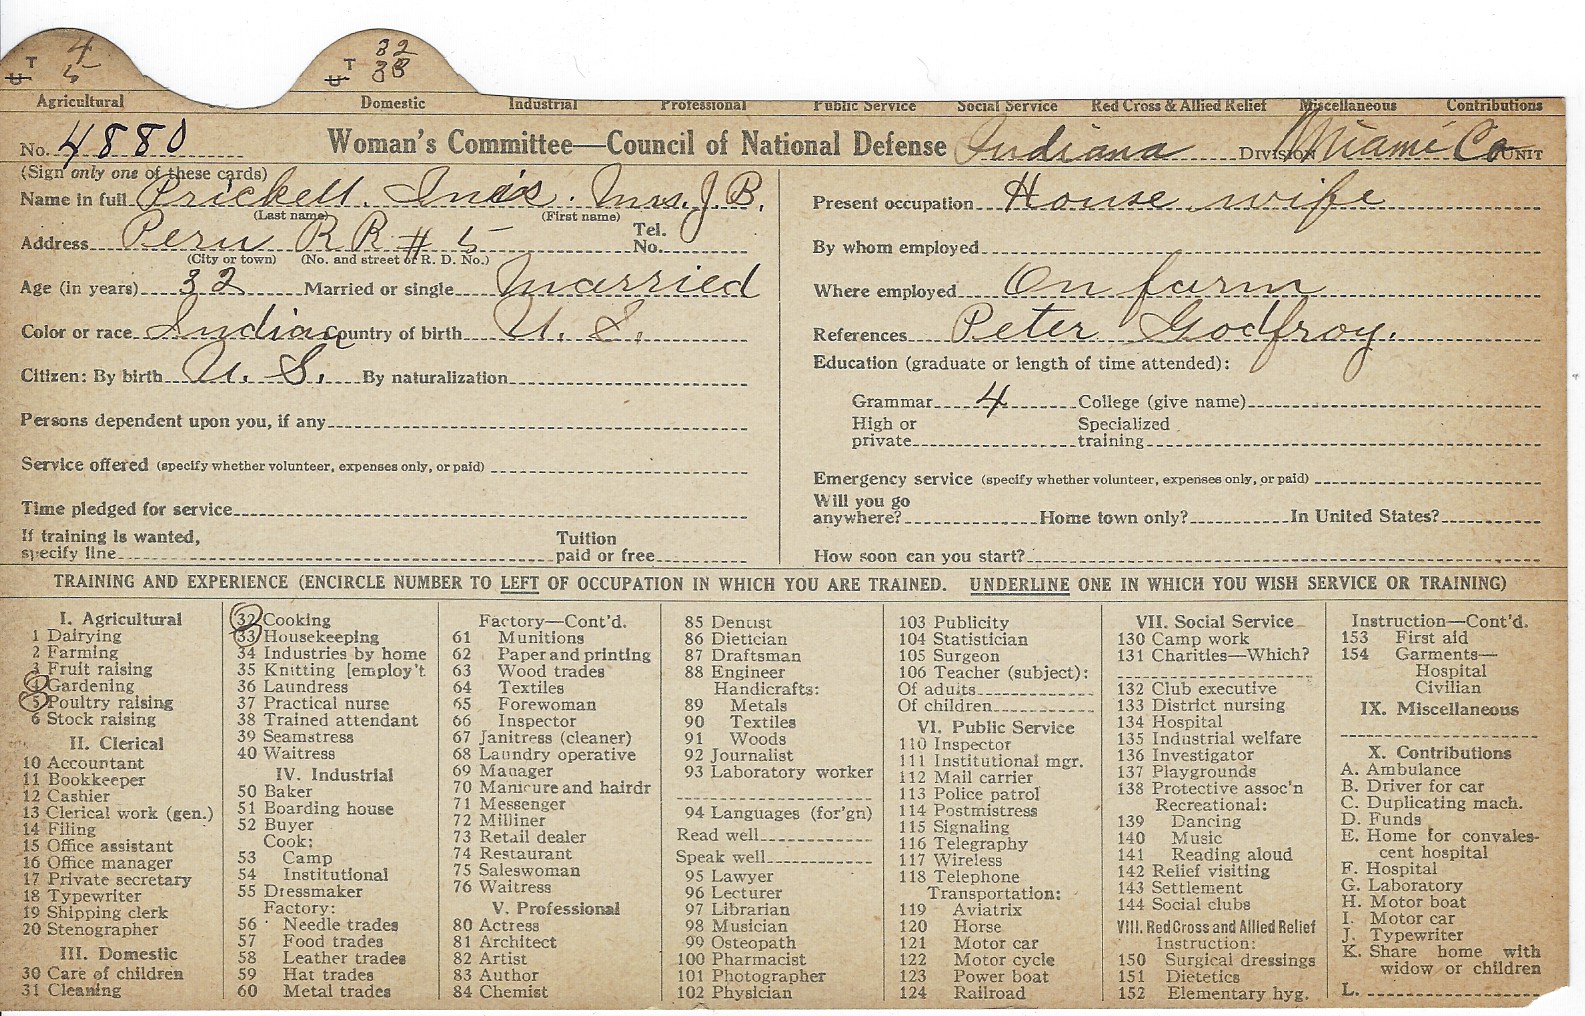 T 4 T 32
U 5 U 33
Agricultural Domestic Industrial Professional Public Service Social Service Red Cross & Allied Relief Miscellaneous Contributions
No. 4880 Woman's Committee—Council of National Defense Indiana Division Miami Co Unit
(Sign only one of these cards)
Name in full Prickett. Inez. Mrs. J. B.
(Last name) (First name)
Address Peru R R # 5 Tel. No.
(City or town) (No. and street or R. D. No.)
Age (in years) 32 Married or single Married
Color or race Indian Country of birth U. S.
Citizen: By birth U. S. By naturalization
Persons dependent upon you, if any
Service offered (specify whether volunteer, expenses only, or paid)
Time pledged for service
If training is wanted, specify line Tuition paid or free
Present occupation House wife
By whom employed
Where employed On farm
References Peter Godfroy.
Education (graduate or length of time attended):
Grammar 4 College (give name)
High or private Specialized training
Emergency service (specify whether volunteer, expenses only, or paid)
Will you go anywhere? Home town only? In United States?
How soon can you start?
TRAINING AND EXPERIENCE (ENCIRCLE NUMBER TO LEFT OF OCCUPATION IN WHICH YOU ARE TRAINED. UNDERLINE ONE IN WHICH YOU WISH SERVICE OR TRAINING)
I. Agricultural
1 Dairying
2 Farming
3 Fruit raising
4 Gardening
5 Poultry raising
6 Stock raising
II. Clerical
10 Accountant
11 Bookkeeper
12 Cashier
13 Clerical work (gen.)
14 Filing
15 Office assistant
16 Office manager
17 Private secretary
18 Typewriter
19 Shipping clerk
20 Stenographer
III. Domestic
30 Care of children
31 Cleaning
32 Cooking
33 Housekeeping
34 Industries by home
35 Knitting [employ't
36 Laundress
37 Practical nurse
38 Trained attendant
39 Seamstress
40 Waitress
IV. Industrial
50 Baker
51 Boarding house
52 Buyer
Cook:
53 Camp
54 Institutional
55 Dressmaker
Factory:
56 Needle trades
57 Food trades
58 Leather trades
59 Hat trades
60 Metal trades
Factory—Cont'd.
61 Munitions
62 Paper and printing
63 Wood trades
64 Textiles
65 Forewoman
66 Inspector
67 Janitress (cleaner)
68 Laundry operative
69 Manager
70 Manicure and hairdr
71 Messenger
72 Milliner
73 Retail dealer
74 Restaurant
75 Saleswoman
76 Waitress
V. Professional
80 Actress
81 Architect
82 Artist
83 Author
84 Chemist
85 Dentist
86 Dietician
87 Draftsman
88 Engineer
Handicrafts:
89 Metals
90 Textiles
91 Woods
92 Journalist
93 Laboratory worker
94 Languages (for'gn)
Read well
Speak well
95 Lawyer
96 Lecturer
97 Librarian
98 Musician
99 Osteopath
100 Pharmacist
101 Photographer
102 Physician
103 Publicity
104 Statistician
105 Surgeon
106 Teacher (subject):
Of adults
Of children
VI. Public Service
110 Inspector
111 Institutional mgr.
112 Mail carrier
113 Police patrol
114 Postmistress
115 Signaling
116 Telegraphy
117 Wireless
118 Telephone
Transportation:
119 Aviatrix
120 Horse
121 Motor car
122 Motor cycle
123 Power boat
124 Railroad
VII. Social Service
130 Camp work
131 Charities—Which?
132 Club executive
133 District nursing
134 Hospital
135 Industrial welfare
136 Investigator
137 Playgrounds
138 Protective assoc'n
Recreational:
139 Dancing
140 Music
141 Reading aloud
142 Relief visiting
143 Settlement
144 Social clubs
VIII. Red Cross and Allied Relief
Instruction:
150 Surgical dressings
151 Dietetics
152 Elementary hyg.
Instruction—Cont'd.
153 First aid
154 Garments—
Hospital
Civilian
IX. Miscellaneous
X. Contributions
A. Ambulance
B. Driver for car
C. Duplicating mach.
D. Funds
E. Home for convales-
cent hospital
F. Hospital
G. Laboratory
H. Motor boat
I. Motor car
J. Typewriter
K. Share home with
widow or children
L.